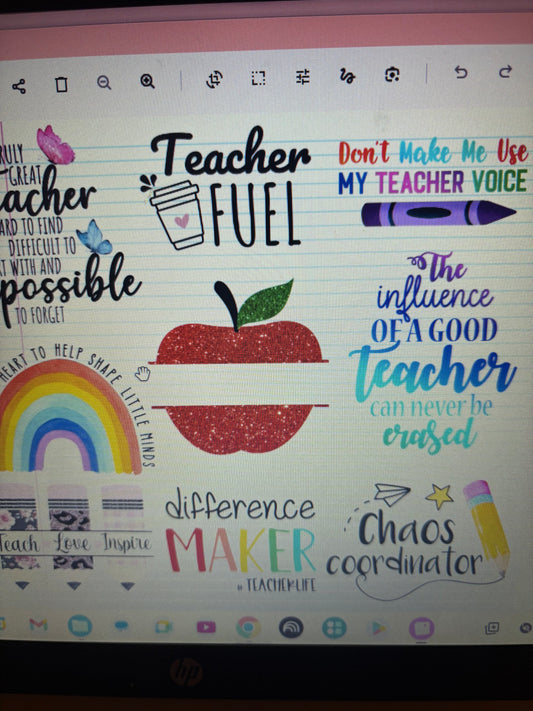 RULY
GREAT
acher
ARD TO FIND
DIFFICULT TO
T WITH AND
possible
TO FORGET
Teacher
FUEL
Don't Make Me Use
MY TEACHER VOICE
HEART TO HELP SHAPE LITTLE MINDS
The
influence
OF A GOOD
Teacher
can never be
erased
Teach Love Inspire
difference
MAKER
# TEACHERLIFE
Chaos
coordinator
hp